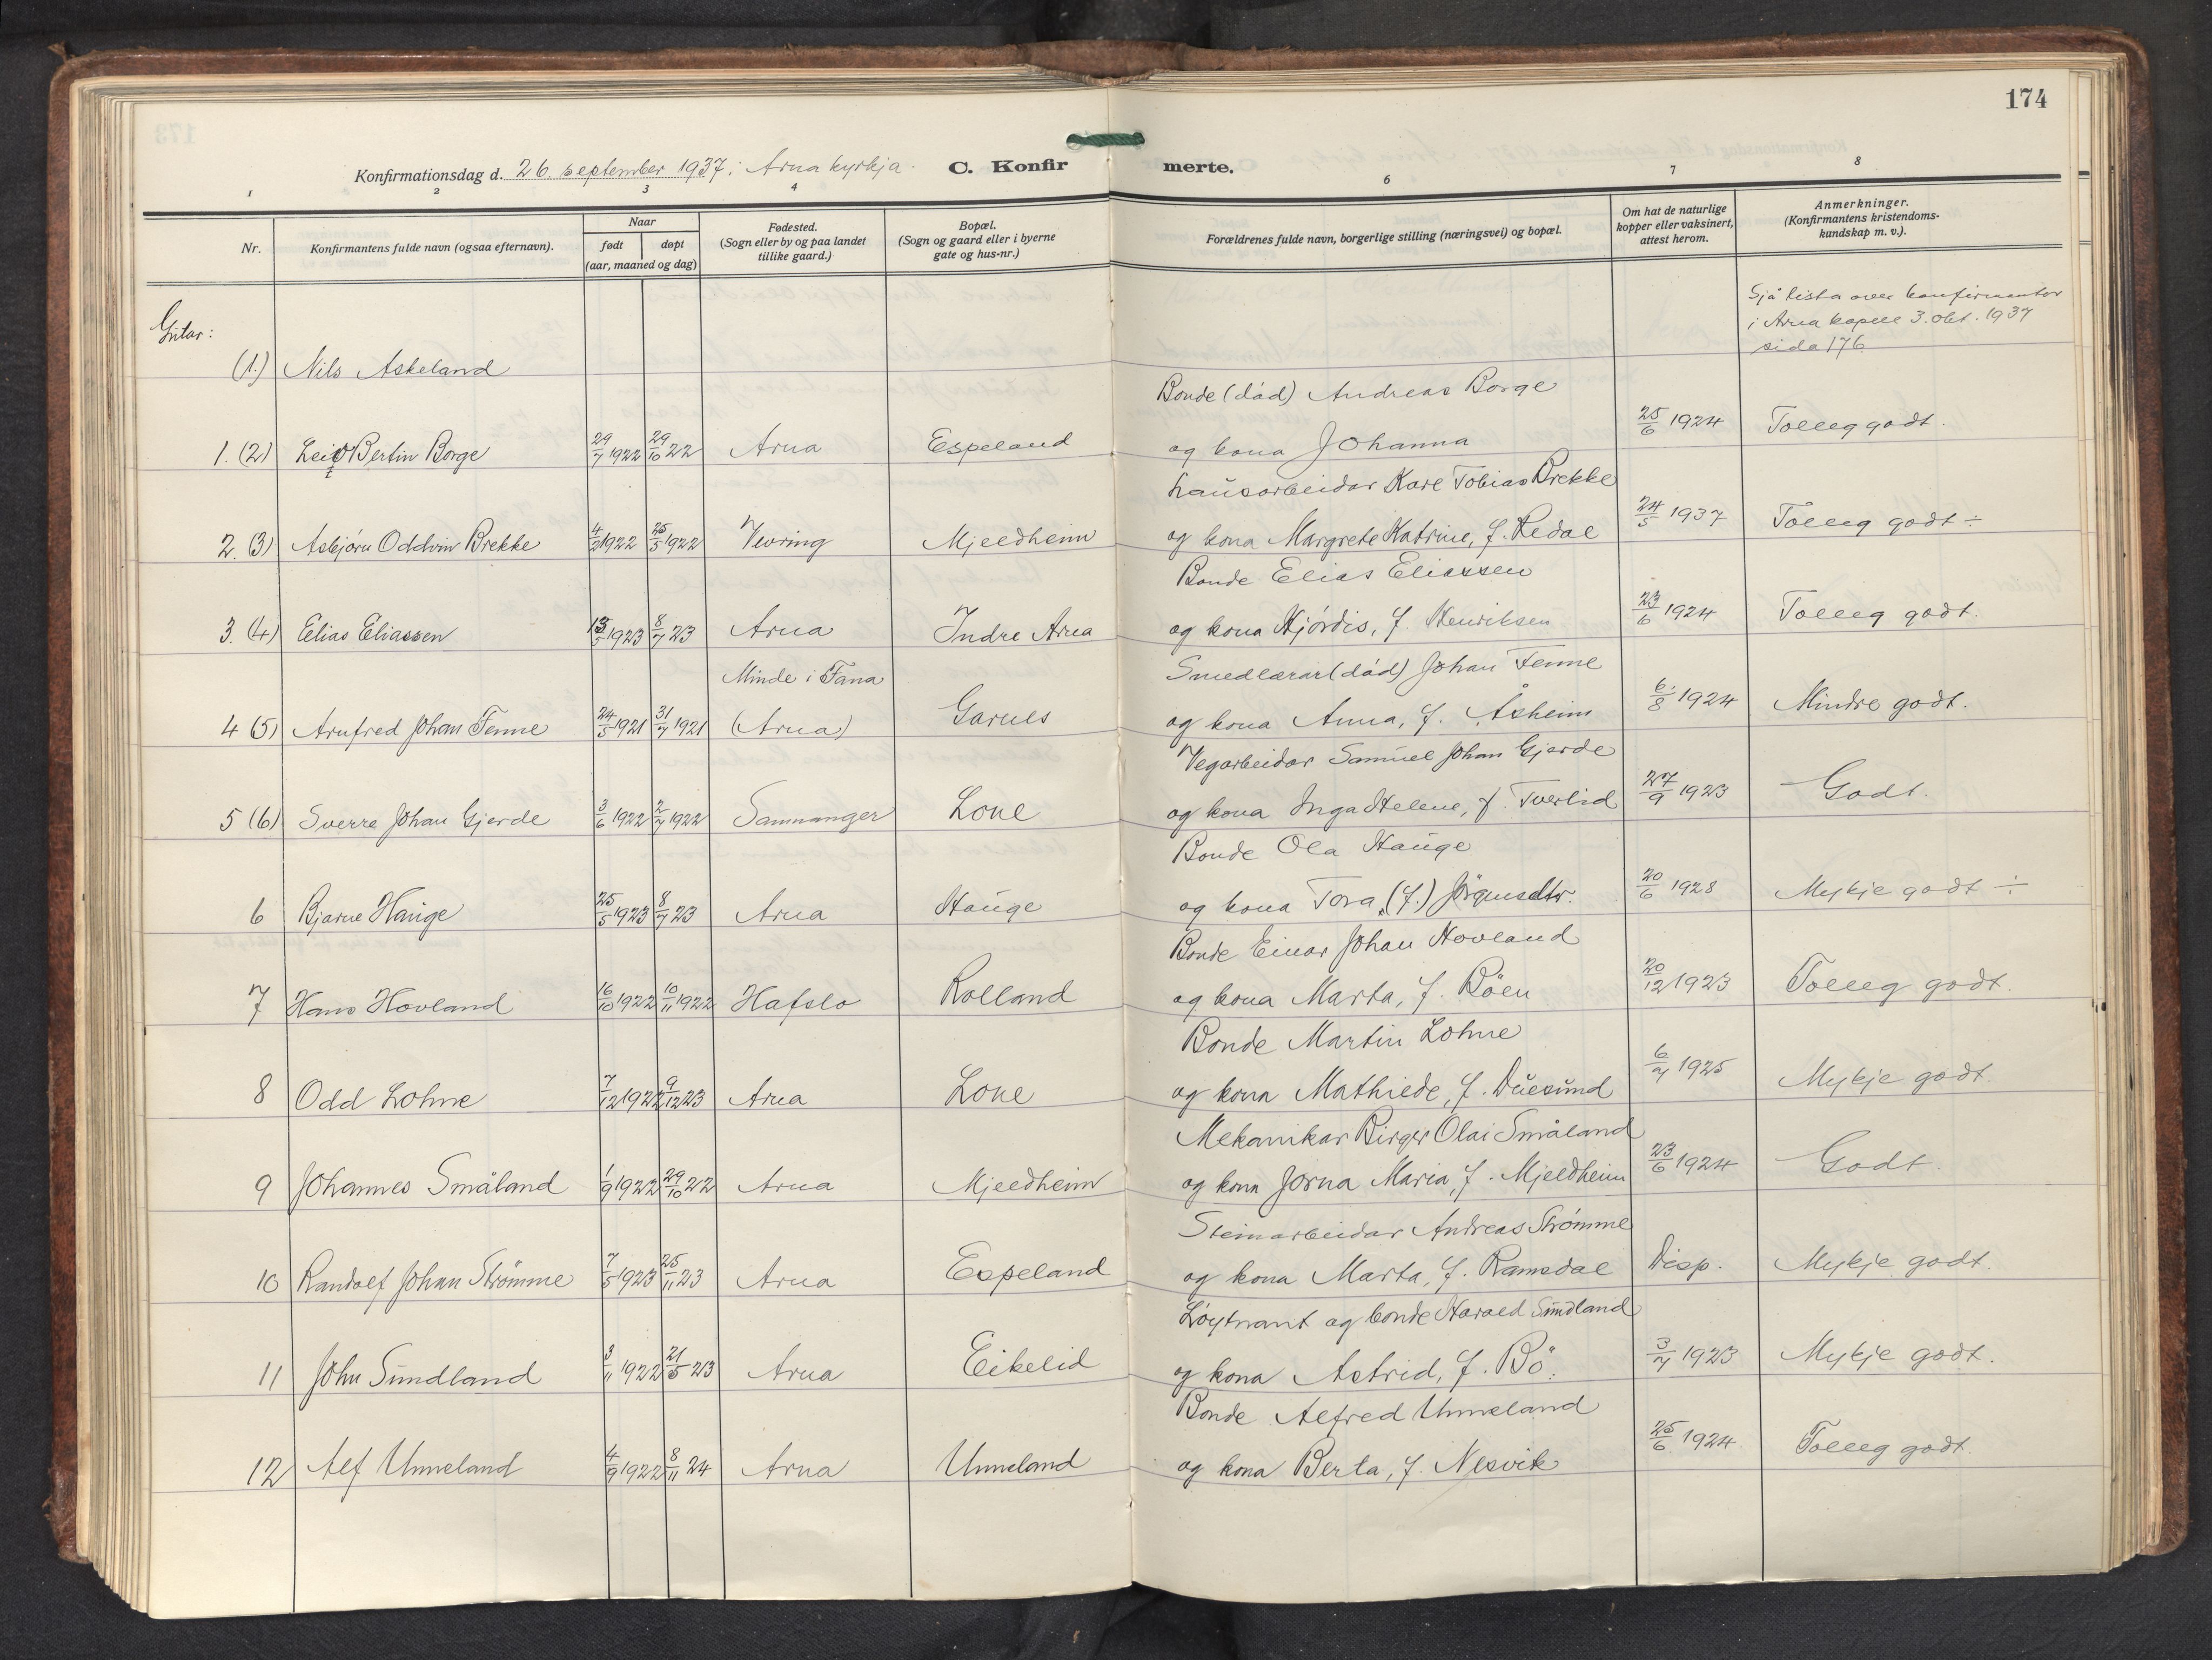 174
Konfirmationsdag d. 26. september 1937 i Arna kyrkja. C. Konfirmerte.
1 2 3 4 6 7 8
Nr. Konfirmantens fulde navn (ogsaa efternavn). Naar født døpt (aar, maaned og dag) Fødested. (Sogn eller by og paa landet tillike gaard.) Bopæl. (Sogn og gaard eller i byerne gate og hus-nr.) Forældrenes fulde navn, borgerlige stilling (næringsvei) og bopæl. Om hat de naturlige kopper eller vaksinert, attest herom. Anmerkninger. (Konfirmantens kristendoms-kundskap m. v.).
Gutar:
(1.) Nils Askeland Sjå lista over konfirmantar i Arna kapell 3. okt. 1937 sida 176
Bonde (död) Andreas Borge
1. (2) Leif Bertin Borge 29/7 1922 29/10 22 Arna Espeland og kona Johanna 25/6 1924 Tolleg godt.
Lausarbeidar Karl Tobias Brekke
2. (3) Asbjörn Oddvin Brekke 4/2 1922 25/5 1922 Vevring Mjeldheim og kona Margrete Katrine, f. Redal 24/5 1937 Tolleg godt ÷
Bonde Elias Eliassen
3. (4) Elias Eliassen 13/5 1923 8/7 23 Arna Indre Arna og kona Hjördis, f. Henriksen 23/6 1924 Tolleg godt.
Minde i Fana Smedlærar (död) Johan Tenne
4 (5) Arnfred Johan Tenne 24/5 1921 31/7 1921 (Arna) Garnes og kona Anna, f. Åsheim 6/8 1924 Mindre godt.
Vegarbeidar Samuel Johan Gjerde
5 (6) Sverre Johan Gjerde 3/6 1922 2/7 1922 Samnanger Lone og kona Inga Helene, f. Tverlid 27/9 1923 Godt.
Bonde Ola Hauge
6 Bjarne Hauge 25/5 1923 8/7 23 Arna Hauge og kona Tora, (f.) Jörgensdtr. 20/6 1928 Mykje godt ÷
Bonde Einar Johan Hovland
7 Hans Hovland 16/10 1922 10/11 1922 Hafslo Rolland og kona Marta, f. Böen 20/12 1923 Tolleg godt.
Bonde Martin Lohne
8 Odd Lohne 7/12 1922 9/12 23 Arna Lone og kona Mathilde, f. Duesund 6/7 1925 Mykje godt.
Mekanikar Birger Olai Småland
9 Johannes Småland 1/9 1922 29/10 22 Arna Mjeldheim og kona Jorna Maria, f. Mjeldheim 23/6 1924 Godt.
Steinarbeidar Andreas Strömme
10 Randolf Johan Strömme 7/5 1923 25/11 23 Arna Espeland og kona Marta, f. Ramsdal Disp. Mykje godt.
Löytnant og bonde Harald Sundland
11 John Sundland 3/11 1922 21/5 23 Arna Eikelid og kona Astrid, f. Bö. 3/7 1923 Mykje godt.
Bonde Alfred Unneland
12 Alf Unneland 4/9 1922 8/11 24 Arna Unneland og kona Berta, f. Nesvik 25/6 1924 Tolleg godt.